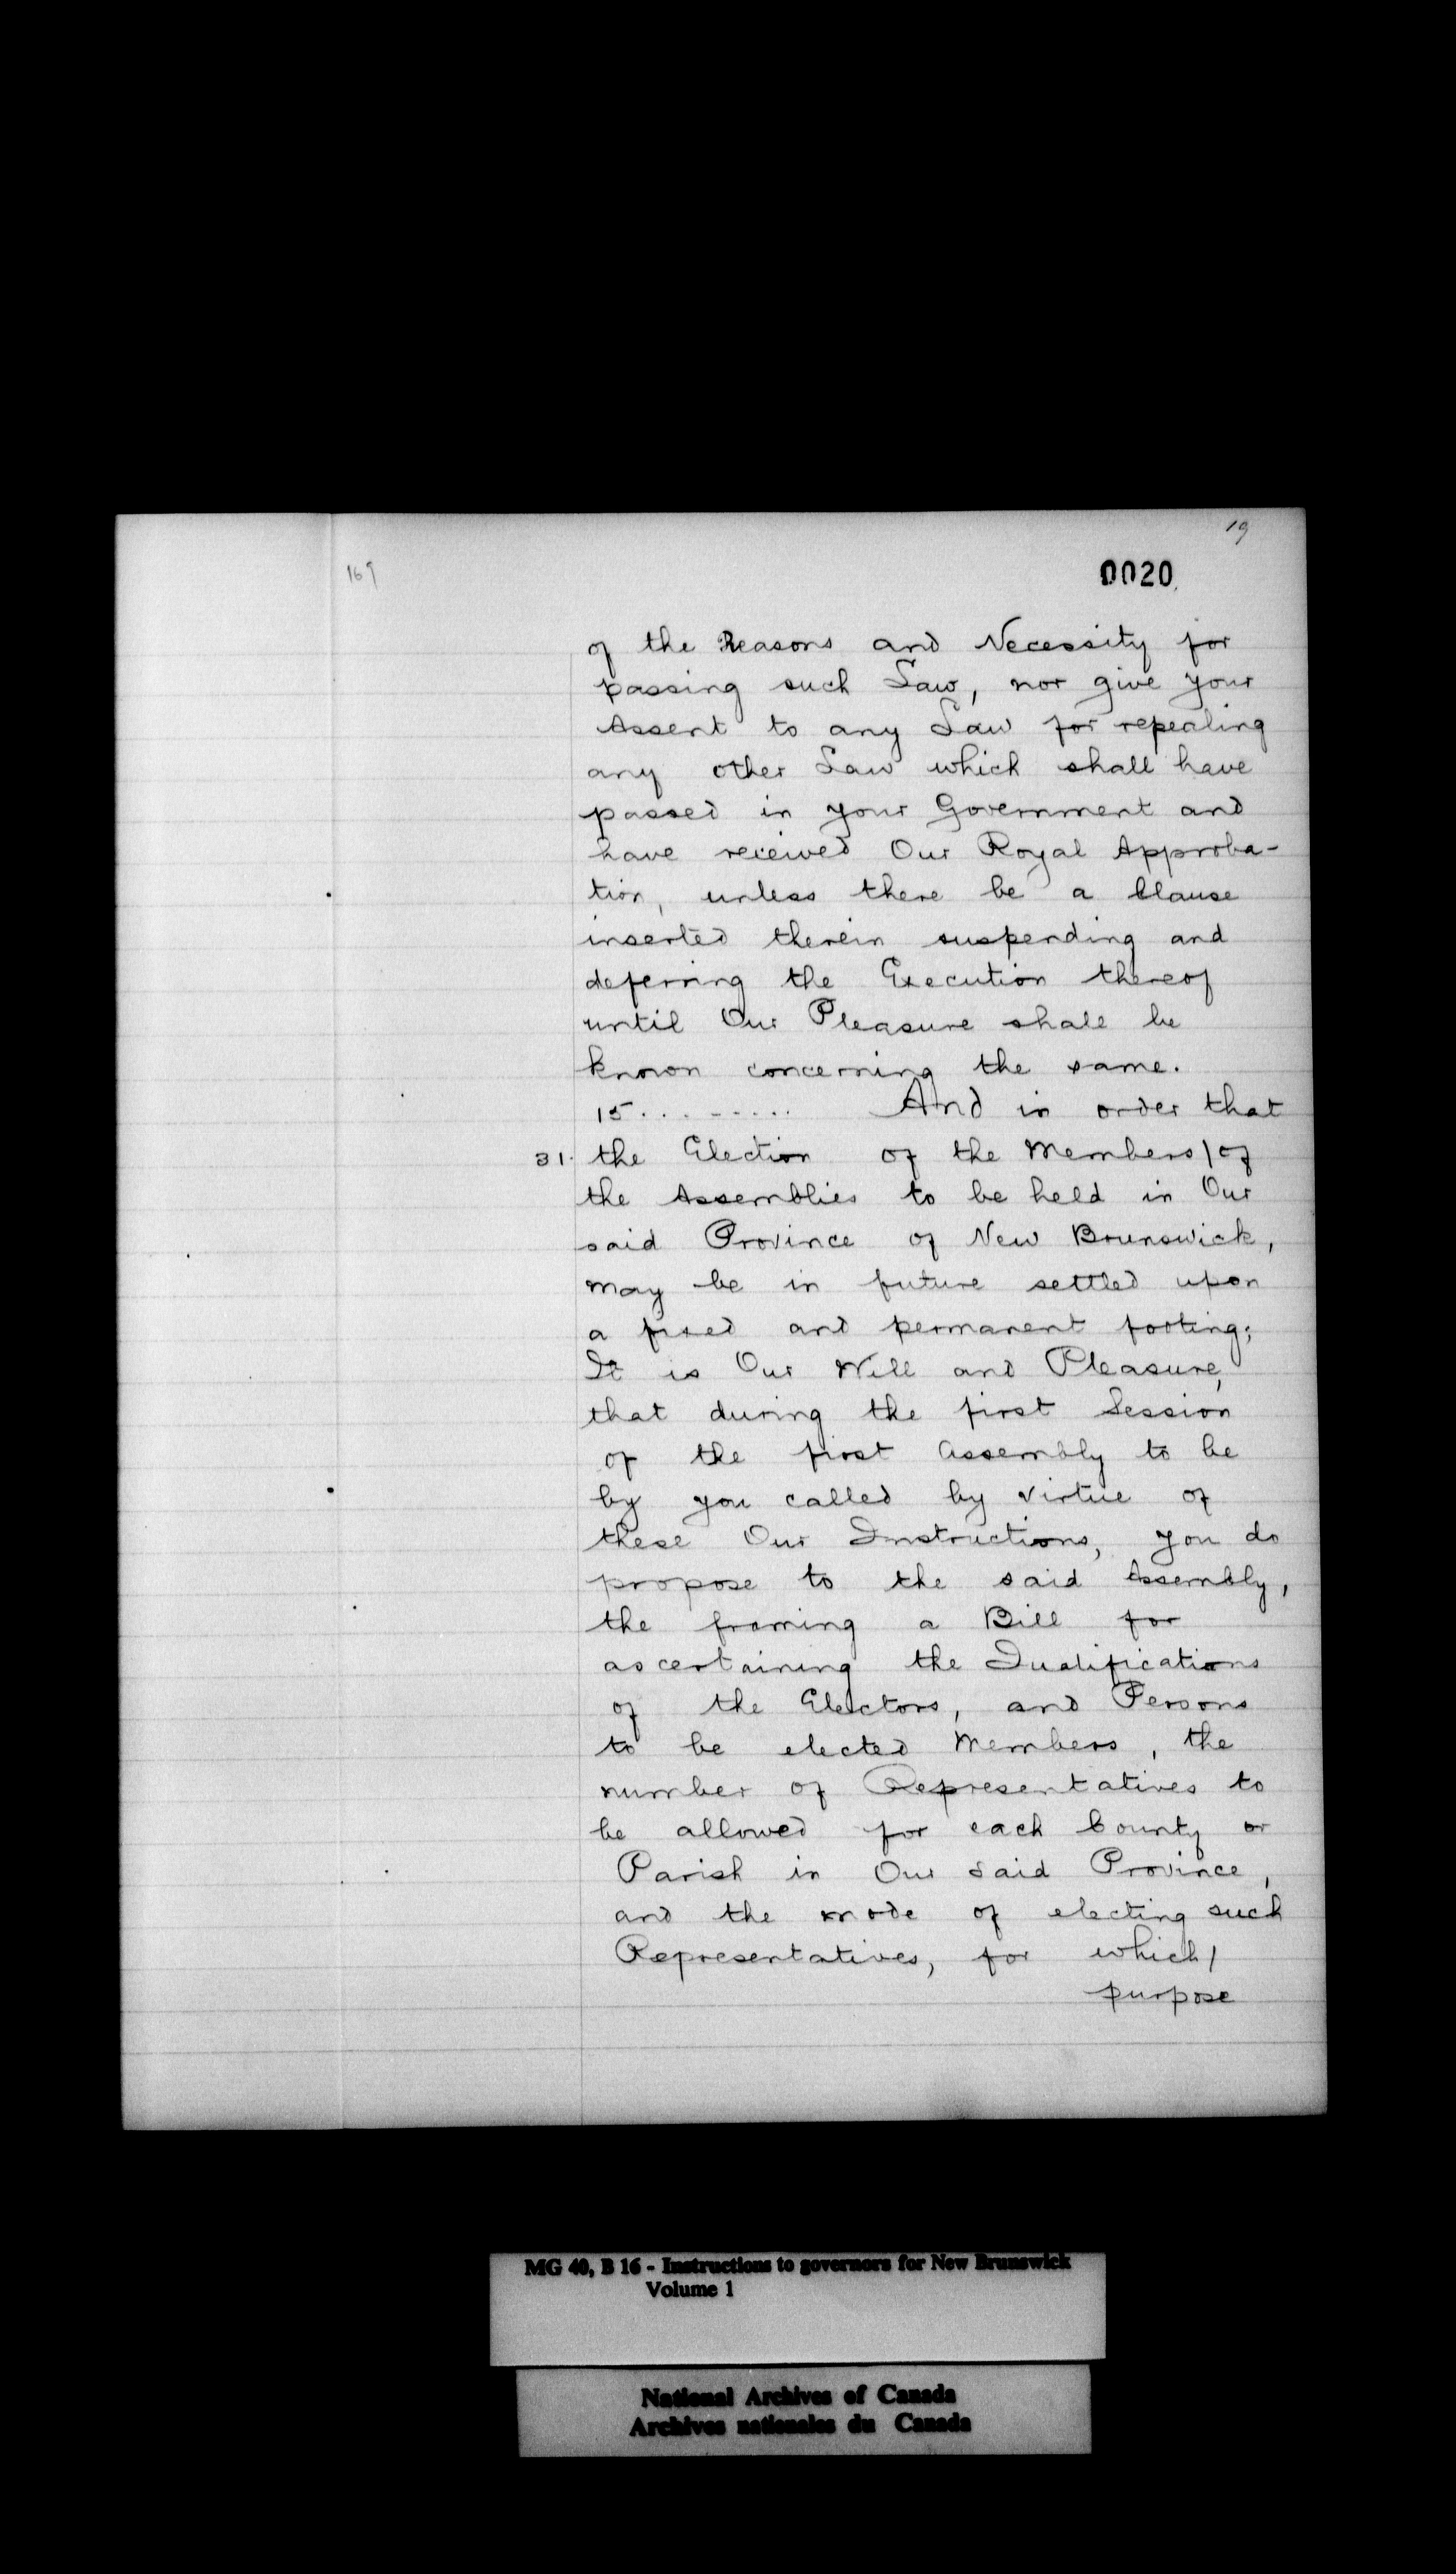 19
169
0020
of the Reasons and Necessity for
passing such Law, nor give your
Assent to any Law for repealing
any other Law which shall have
passed in your Government and
have received Our Royal Approba-
tion, unless there be a Clause
inserted therein suspending and
deferring the Execution thereof
until Our Pleasure shall be
known concerning the same.
15......... And in order that
31. the Election of the Members/of
the Assemblies to be held in Our
said Province of New Brunswick,
may be in future settled upon
a fixed and permanent footing;
It is Our Will and Pleasure,
that during the first Session
of the first Assembly to be
by you called by virtue of
these Our Instructions, you do
propose to the said Assembly,
the framing a Bill for
ascertaining the Qualifications
of the Electors, and Persons
to be elected Members, the
number of Representatives to
be allowed for each County or
Parish in Our said Province,
and the mode of electing such
Representatives, for which/
purpose
MG 40, B 16 - Instructions to governors for New Brunswick
Volume 1
National Archives of Canada
Archives nationales du Canada